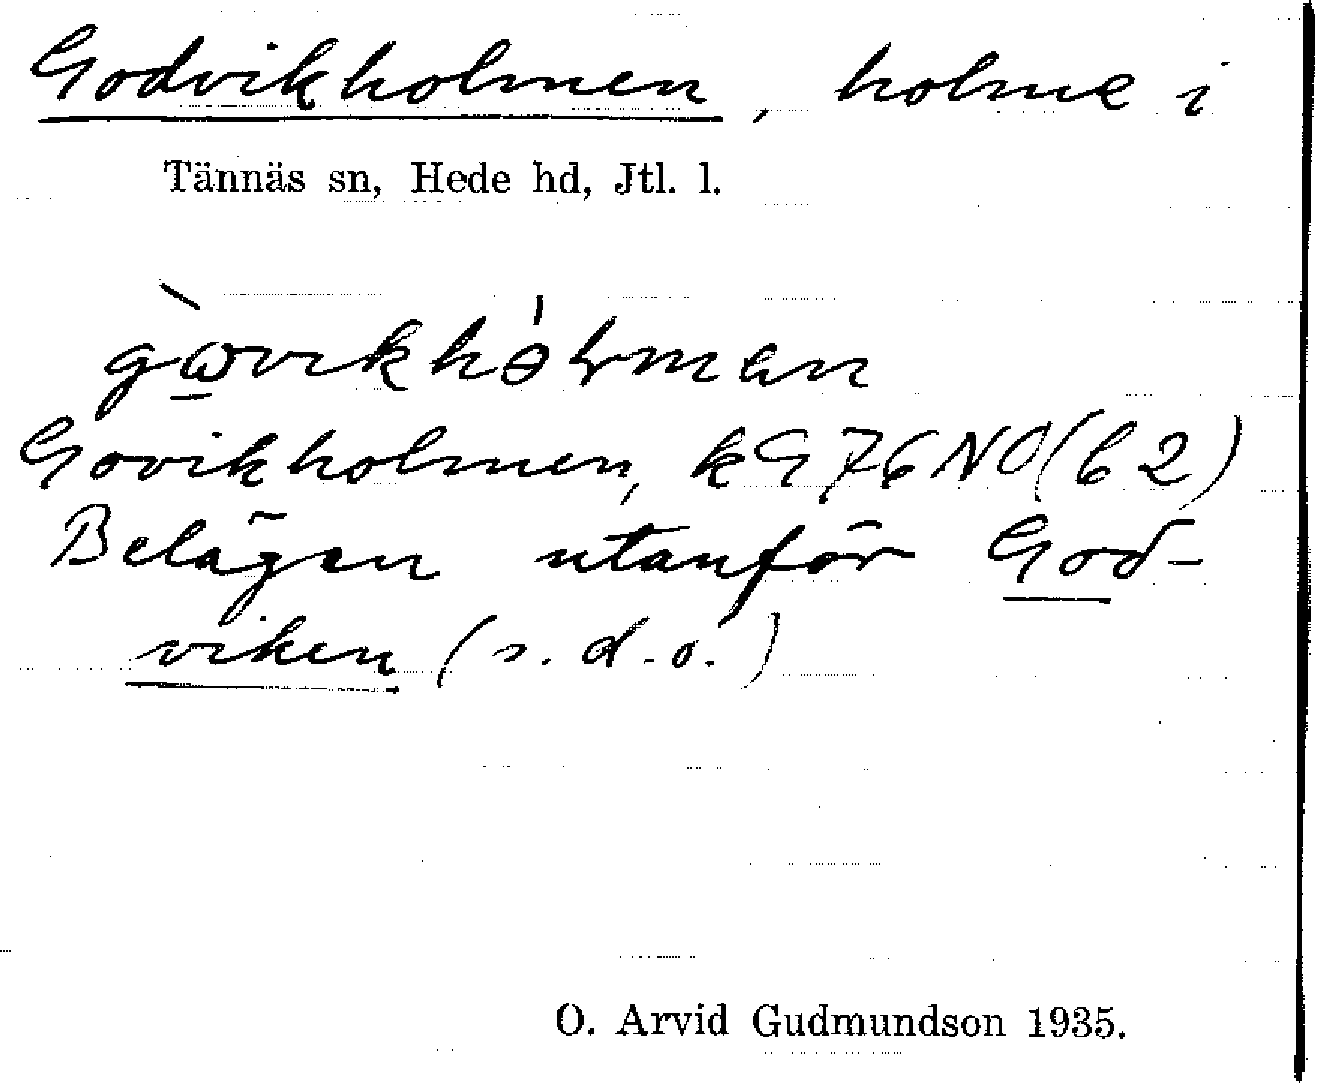 Godvikholmen, holme i
Tännäs sn, Hede hd, Jtl. l.
Govikholmen, kG76NO(62)
Belägen utanför God-
viken (s.d.o.)
O. Arvid Gudmundson 1935.